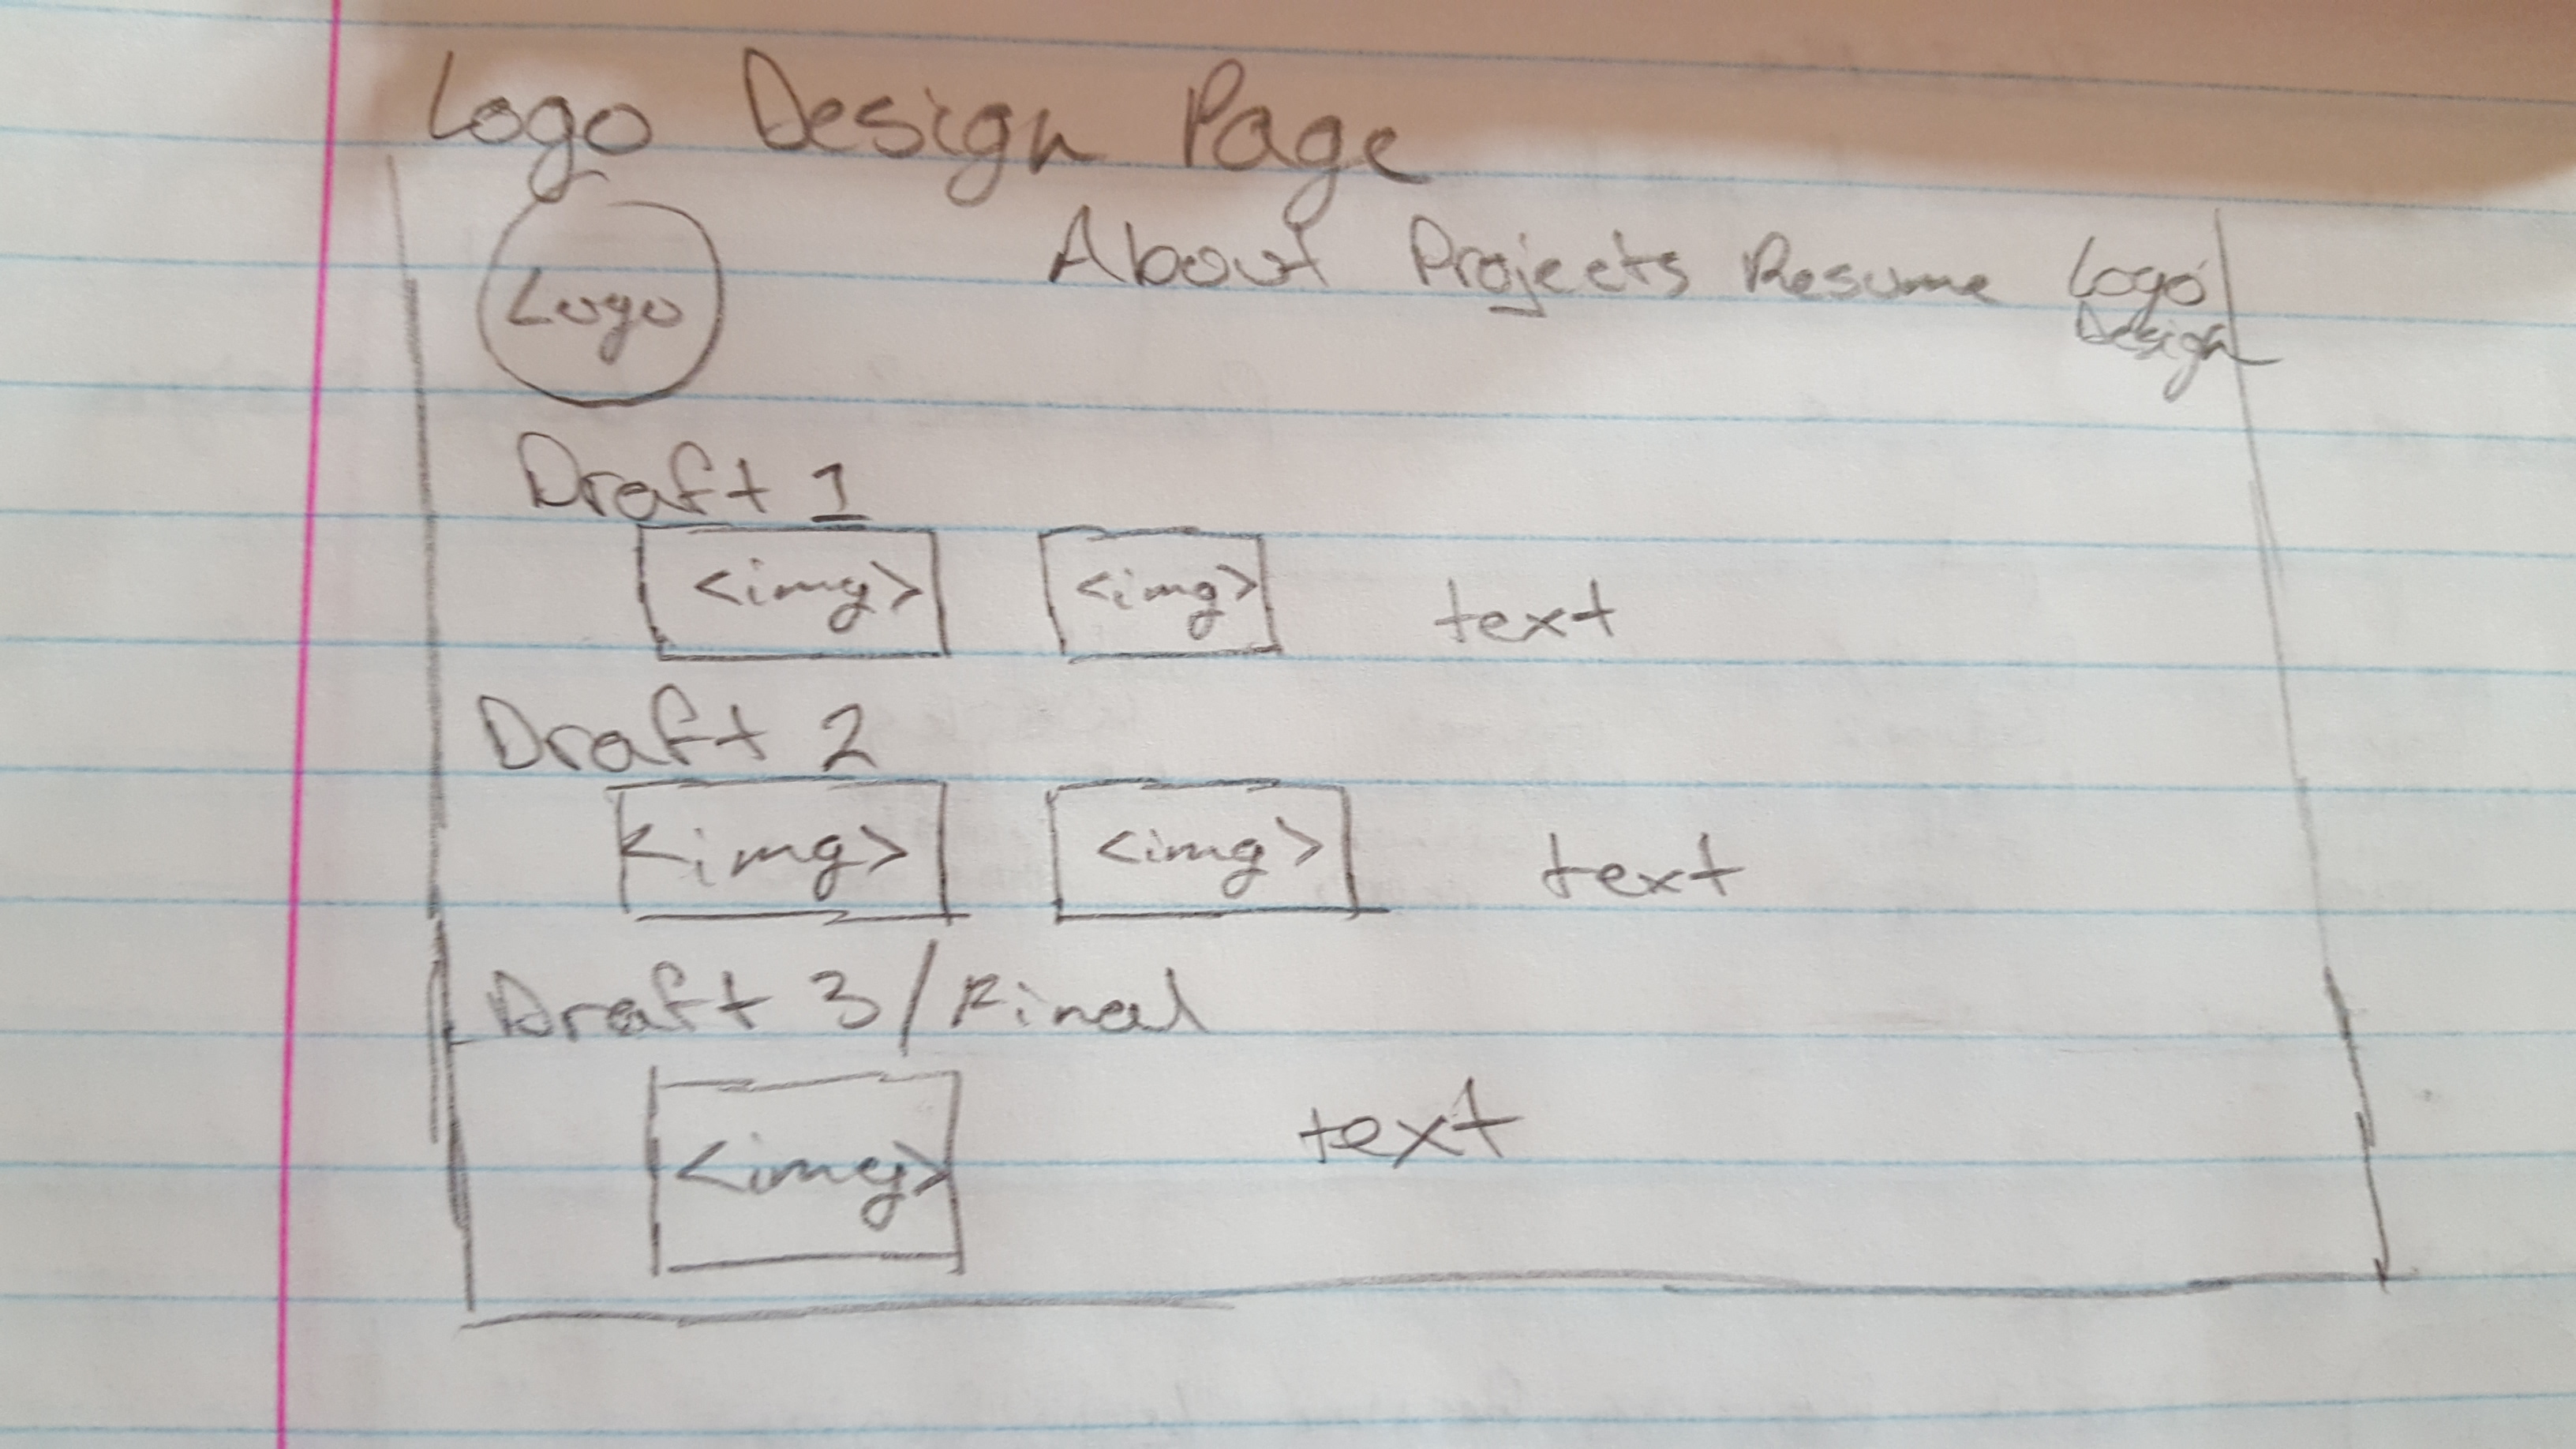 Logo Design Page
Logo About Projects Resume Logo
Design
Draft 1
<img> <img> text
Draft 2
<img> <img> text
Draft 3/Final
<img> text